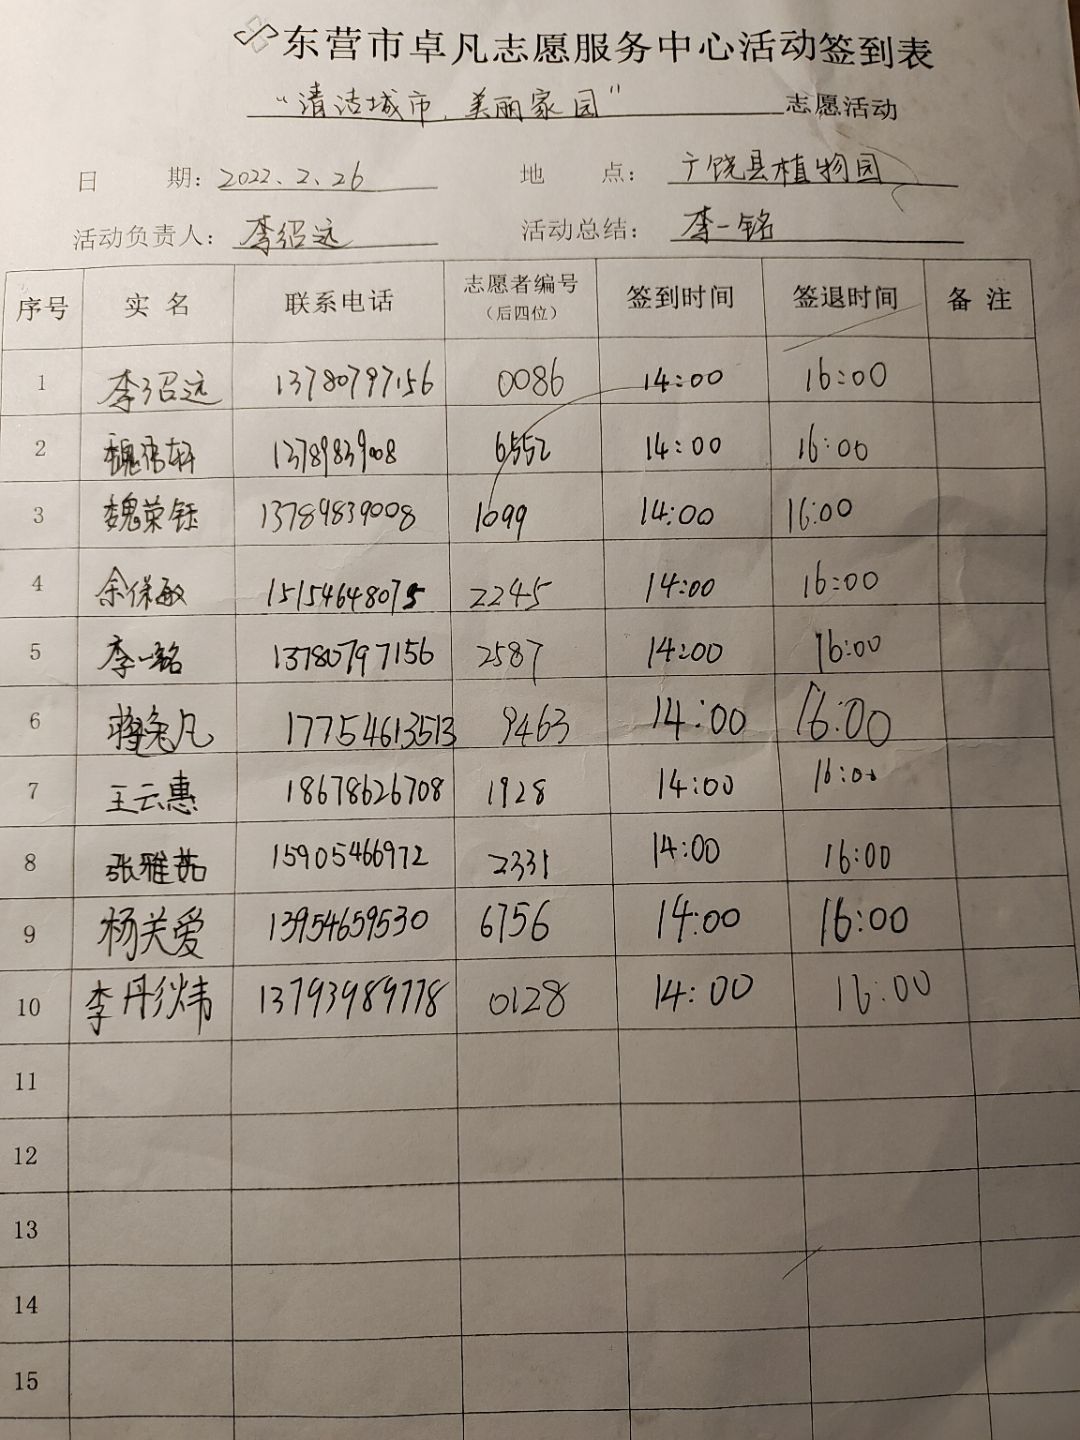 东营市卓凡志愿服务中心活动签到表
“清洁城市、美丽家园” 志愿活动
日 期：2022.2.26 地 点：广饶县植物园
活动负责人：李绍远 活动总结：李一铭
序号 实名 联系电话 志愿者编号（后四位） 签到时间 签退时间 备注
1 李绍远 13780797156 0086 14:00 16:00
2 13789839008 6552 14:00 16:00
3 魏荣钰 13789839008 1099 14:00 16:00
4 余保敏 15154648075 2245 14:00 16:00
5 李一铭 13780797156 2587 14:00 16:00
6 凡 17754613513 9463 14:00 16:00
7 王云惠 18678626708 1928 14:00 16:00
8 张雅茹 15905466972 2331 14:00 16:00
9 杨关爱 13954659530 6756 14:00 16:00
10 李丹 13793989778 0128 14:00 16:00
11
12
13
14
15